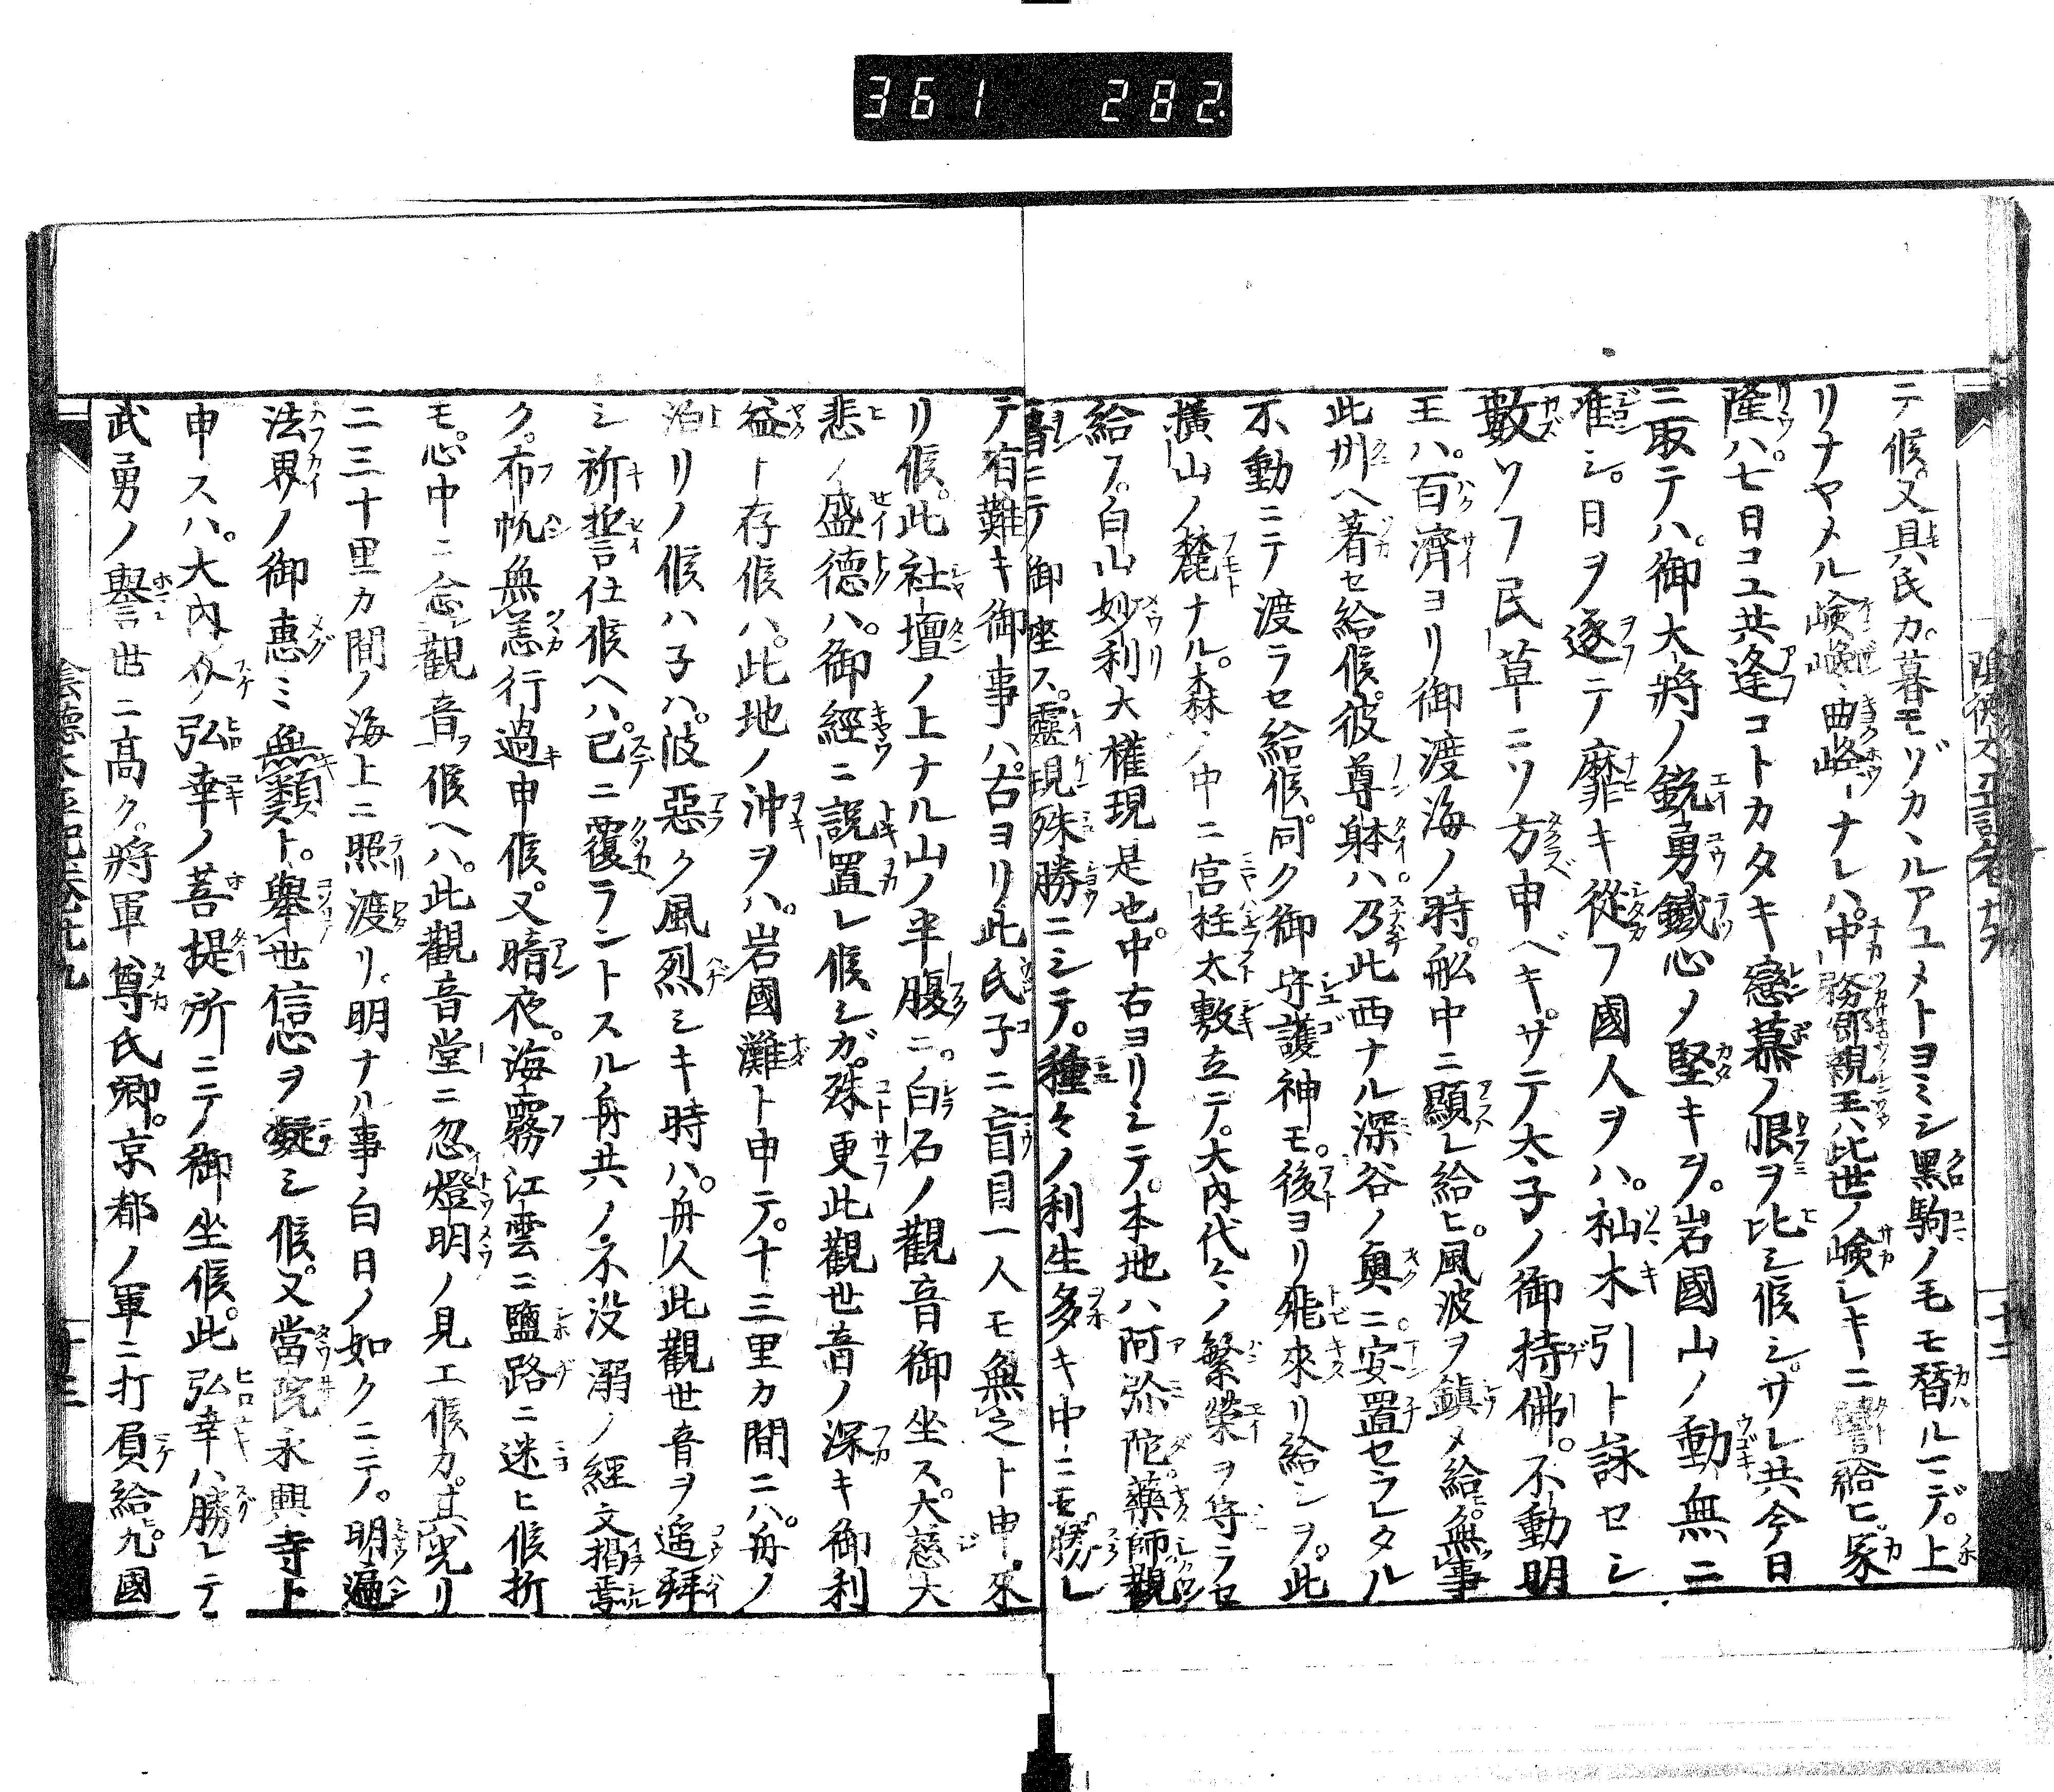 361 282
テ候。又具氏カ。暮モゾカヽルアユメトヨミシ黒駒ノ毛モ替ルマデ。上
リナヤメル嶮喚曲路ナレハ。中務卿親王ハ此世ノ嶮レキニ譬給ヒ。家
隆ハ。七日コユ共逢コトカタキ戀慕ノ恨ヲ比シ候シ。サレ共今日
三取テハ。御大將ノ鋭勇鐵心ノ堅キヲ。岩國山ノ動無ニ
准シ。目ヲ逐テ靡キ從フ國人ヲハ。杣木引ト詠セシ
數ソフ民草ニソ方申ベキ。サテ太子ノ御持佛。不動明
王ハ。百濟ヨリ御渡海ノ時。舩中ニ顯レ給ヒ。風波ヲ鎮メ給ヒ。無事
此州ヘ著セ給候。彼尊躰ハ乃此西ナル深谷ノ奥ニ。安置セラレタル
不動ニテ渡ラセ給候。同ク御守護神モ。後ヨリ飛來リ給シヲ。此
横山ノ麓ナル。森ノ中ニ宮柱太敷立テ。大内代々ノ繁榮ヲ守ラセ
給フ。白山妙利大權現是也。中右ヨリシテ。本地ハ阿弥陀藥師觀
音ニテ御座ス。靈現殊勝ニシテ。種々ノ利生多キ中ニモ。勝レ
テ有難キ御事ハ。古ヨリ此氏子ニ盲目一人モ無之ト申來
リ候。此社壇ノ上ナル山ノ半腹ニ。白石ノ觀音御坐ス。大慈大
悲ノ盛德ハ。御經ニ説置レ候シガ。殊更此觀世音ノ深キ御利
益ト存候ハ。此地ノ沖ヲハ。岩國灘ト申テ。十三里カ間ニハ。舟ノ
泊リノ候ハ子ハ。波惡ク風烈シキ時ハ。舟人此觀世音ヲ遥拜
シ祈誓仕候ヘハ。已ニ覆ラントスル舟共ノ。不没溺ノ經文掲焉
ク。布帆無恙行過申候。又暗夜。海霧江雲ニ鹽路ニ迷ヒ候折
モ。心中ニ念觀音ヲ候ヘハ。此觀音堂ニ忽燈明ノ見エ候カ。其光リ
二三十里カ間ノ海上ニ照渡リ。明ナル事白日ノ如クニテ。明遍
法界ノ御惠ミ無類ト。舉世信心ヲ凝シ候。又當院永興寺ト
申スハ。大内介弘幸ノ菩提所ニテ御坐候。此弘幸ハ勝レテ
武勇ノ譽世ニ高ク。將軍尊氏卿。京都ノ軍ニ打負給ヒ。九國